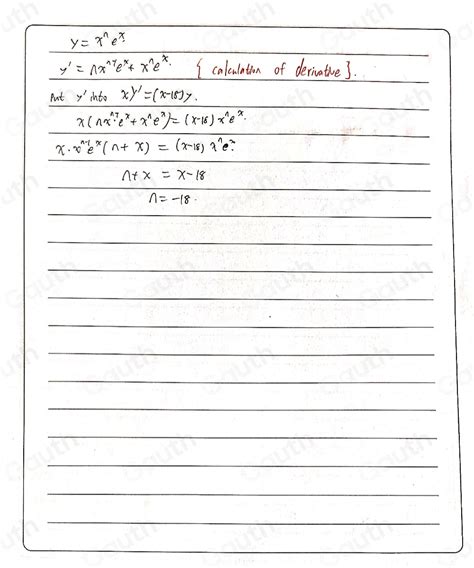 y = xⁿeˣ.
y' = nxⁿ⁻¹eˣ + xⁿeˣ. { calculation of derivative }.
Put y' into xy' = (x-18)y.
x(nxⁿ⁻¹eˣ + xⁿeˣ) = (x-18) xⁿeˣ.
x·xⁿ⁻¹eˣ(n + x) = (x-18) xⁿeˣ.
n + x = x - 18
n = -18.